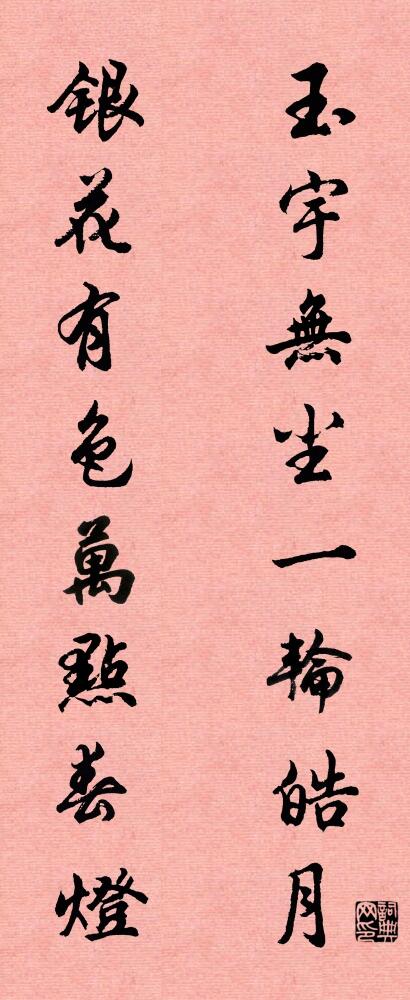 玉宇無尘一輪皓月
詞典网印
銀花有色萬點春燈